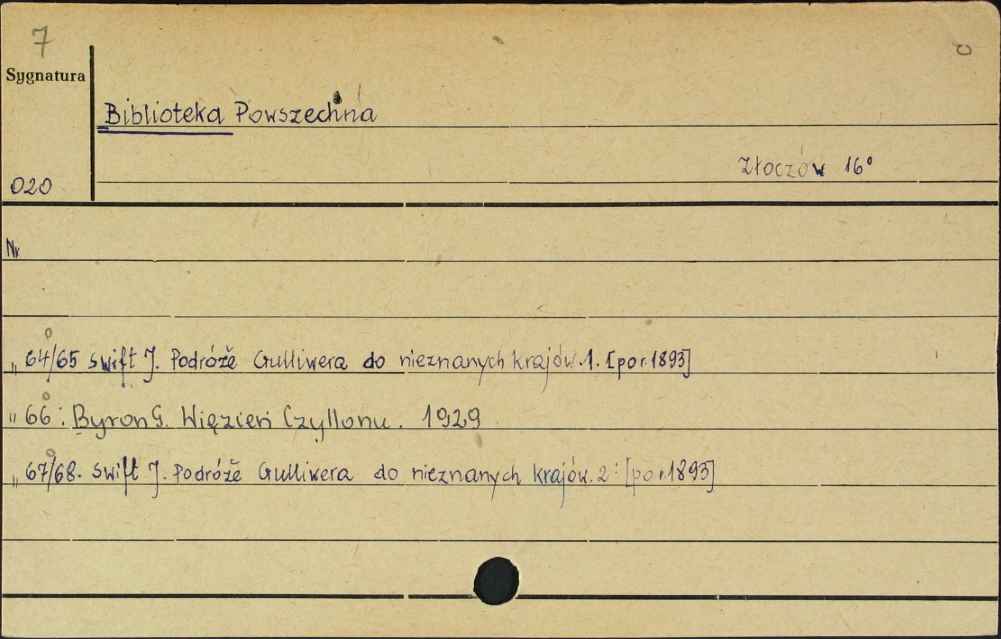 7
Sygnatura
Biblioteka Powszechna
Złoczów 16°
020
Nr
" 64/65 Swift J. Podróże Gulliwera do nieznanych krajów. 1. [por. 1893]
" 66: Byron G. Więzień Czyllonu. 1929
" 67/68. Swift J. Podróże Gulliwera do nieznanych krajów. 2: [por. 1893]